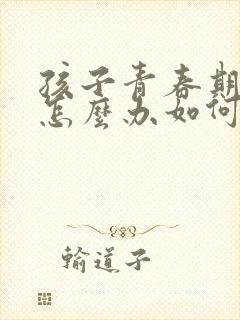 孩子青春期
怎麼办如何
輸道子